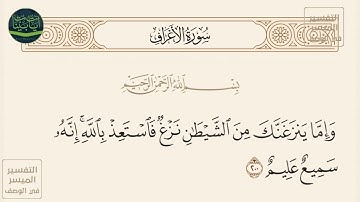 سُورَةُ الأَعْرَافِ
بِسْمِ اللَّهِ الرَّحْمَٰنِ الرَّحِيمِ
وَإِمَّا يَنزَغَنَّكَ مِنَ الشَّيْطَٰنِ نَزْغٌ فَاسْتَعِذْ بِاللَّهِ ۚ إِنَّهُۥ
سَمِيعٌ عَلِيمٌ ٢٠٠
التفسير
الميسر
في الوصف
التفسير
الميسر
في الوصف